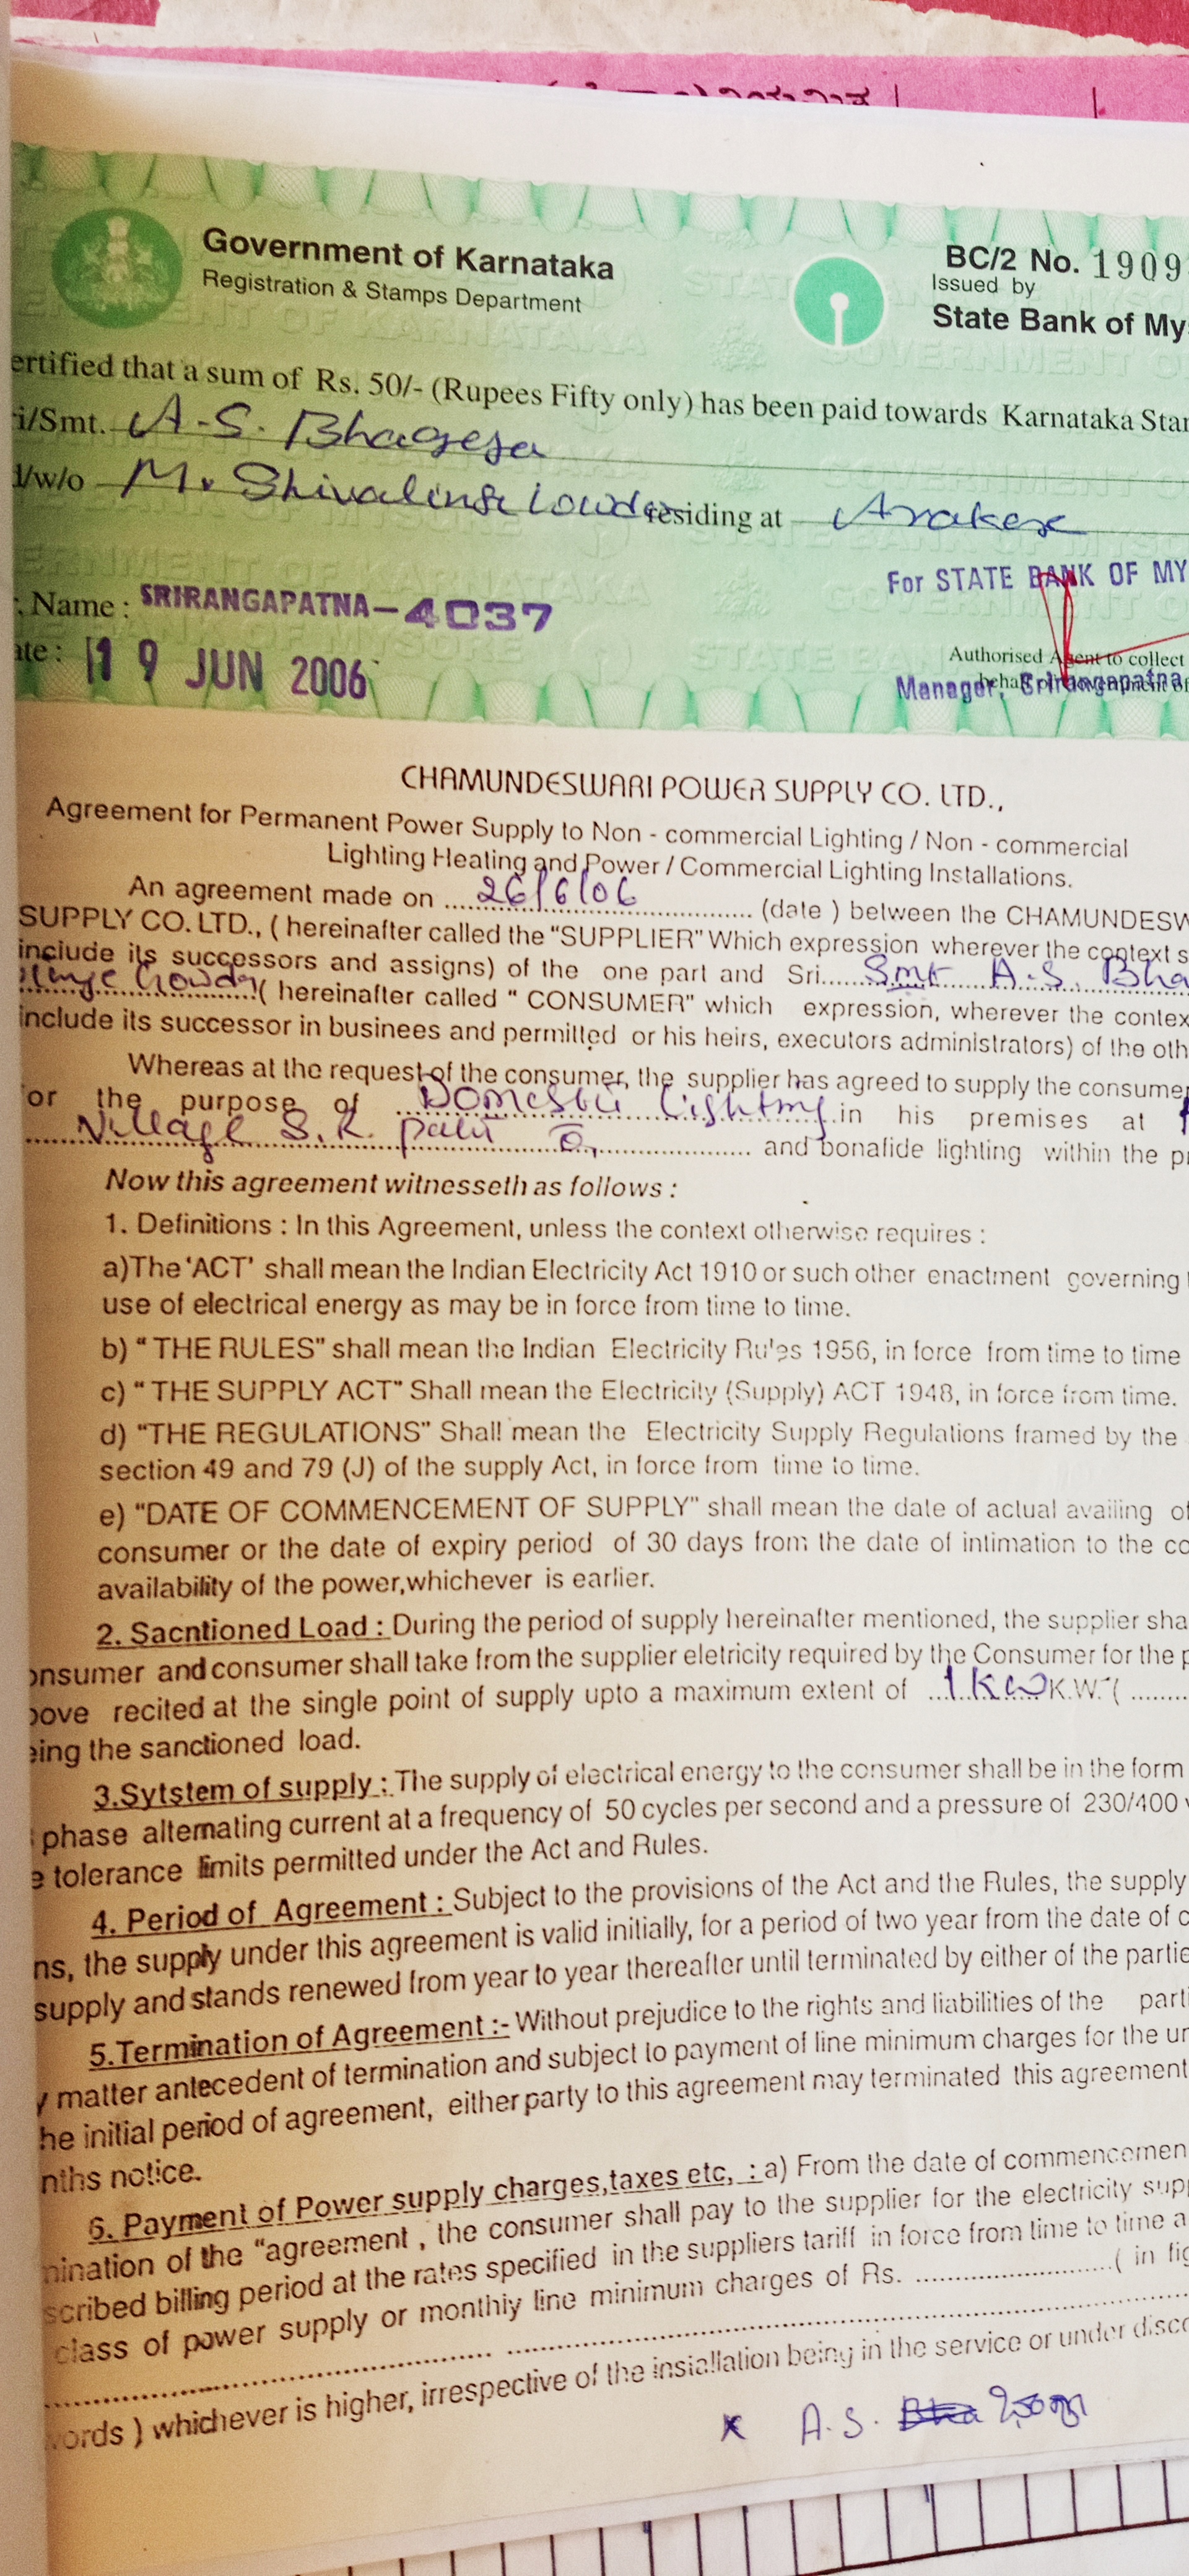 Government of Karnataka
Registration & Stamps Department
BC/2 No. 1909
Issued by
State Bank of My
ertified that a sum of Rs. 50/- (Rupees Fifty only) has been paid towards Karnataka Star
i/Smt. A-S. Bhagega
/w/o M. Shivalinge Gowda residing at Arakere
For STATE BANK OF MY
. Name : SRIRANGAPATNA-4037
ate : 19 JUN 2006
Authorised Agent to collect
Manager, Srirangapatna
CHAMUNDESWARI POWER SUPPLY CO. LTD.,
Agreement for Permanent Power Supply to Non - commercial Lighting / Non - commercial
Lighting Heating and Power / Commercial Lighting Installations.
An agreement made on ....26/6/06.... (date ) between the CHAMUNDESW
SUPPLY CO. LTD., ( hereinafter called the "SUPPLIER" Which expression wherever the context s
include its successors and assigns) of the one part and Sri.....Smt A.S. Bha
linge Gowda ( hereinafter called " CONSUMER" which expression, wherever the contex
include its successor in businees and permitted or his heirs, executors administrators) of the oth
Whereas at the request of the consumer, the supplier has agreed to supply the consumer
or the purpose of ....Domestic Lighting in his premises at
Village S.R. .... and bonafide lighting within the pr
Now this agreement witnesseth as follows :
1. Definitions : In this Agreement, unless the context otherwise requires :
a)The 'ACT' shall mean the Indian Electricity Act 1910 or such other enactment governing
use of electrical energy as may be in force from time to time.
b) " THE RULES" shall mean the Indian Electricity Rules 1956, in force from time to time
c) " THE SUPPLY ACT" Shall mean the Electricity (Supply) ACT 1948, in force from time.
d) "THE REGULATIONS" Shall mean the Electricity Supply Regulations framed by the
section 49 and 79 (J) of the supply Act, in force from time to time.
e) "DATE OF COMMENCEMENT OF SUPPLY" shall mean the date of actual availing of
consumer or the date of expiry period of 30 days from the date of intimation to the co
availability of the power,whichever is earlier.
2. Sacntioned Load : During the period of supply hereinafter mentioned, the supplier sha
onsumer and consumer shall take from the supplier eletricity required by the Consumer for the p
bove recited at the single point of supply upto a maximum extent of ...1KW K.W. ( ........
eing the sanctioned load.
3.Sytstem of supply : The supply of electrical energy to the consumer shall be in the form
phase alternating current at a frequency of 50 cycles per second and a pressure of 230/400 v
e tolerance limits permitted under the Act and Rules.
4. Period of Agreement : Subject to the provisions of the Act and the Rules, the supply
ns, the supply under this agreement is valid initially, for a period of two year from the date of c
supply and stands renewed from year to year thereafter until terminated by either of the partie
5.Termination of Agreement :- Without prejudice to the rights and liabilities of the parti
y matter antecedent of termination and subject to payment of line minimum charges for the un
he initial period of agreement, either party to this agreement may terminated this agreement
nths notice.
6. Payment of Power supply charges,taxes etc, : a) From the date of commencemen
mination of the "agreement , the consumer shall pay to the supplier for the electricity supp
scribed billing period at the rates specified in the suppliers tariff in force from time to time a
class of power supply or monthly line minimum charges of Rs. ............................( in fig
words ) whichever is higher, irrespective of the installation being in the service or under disco
x A.S.